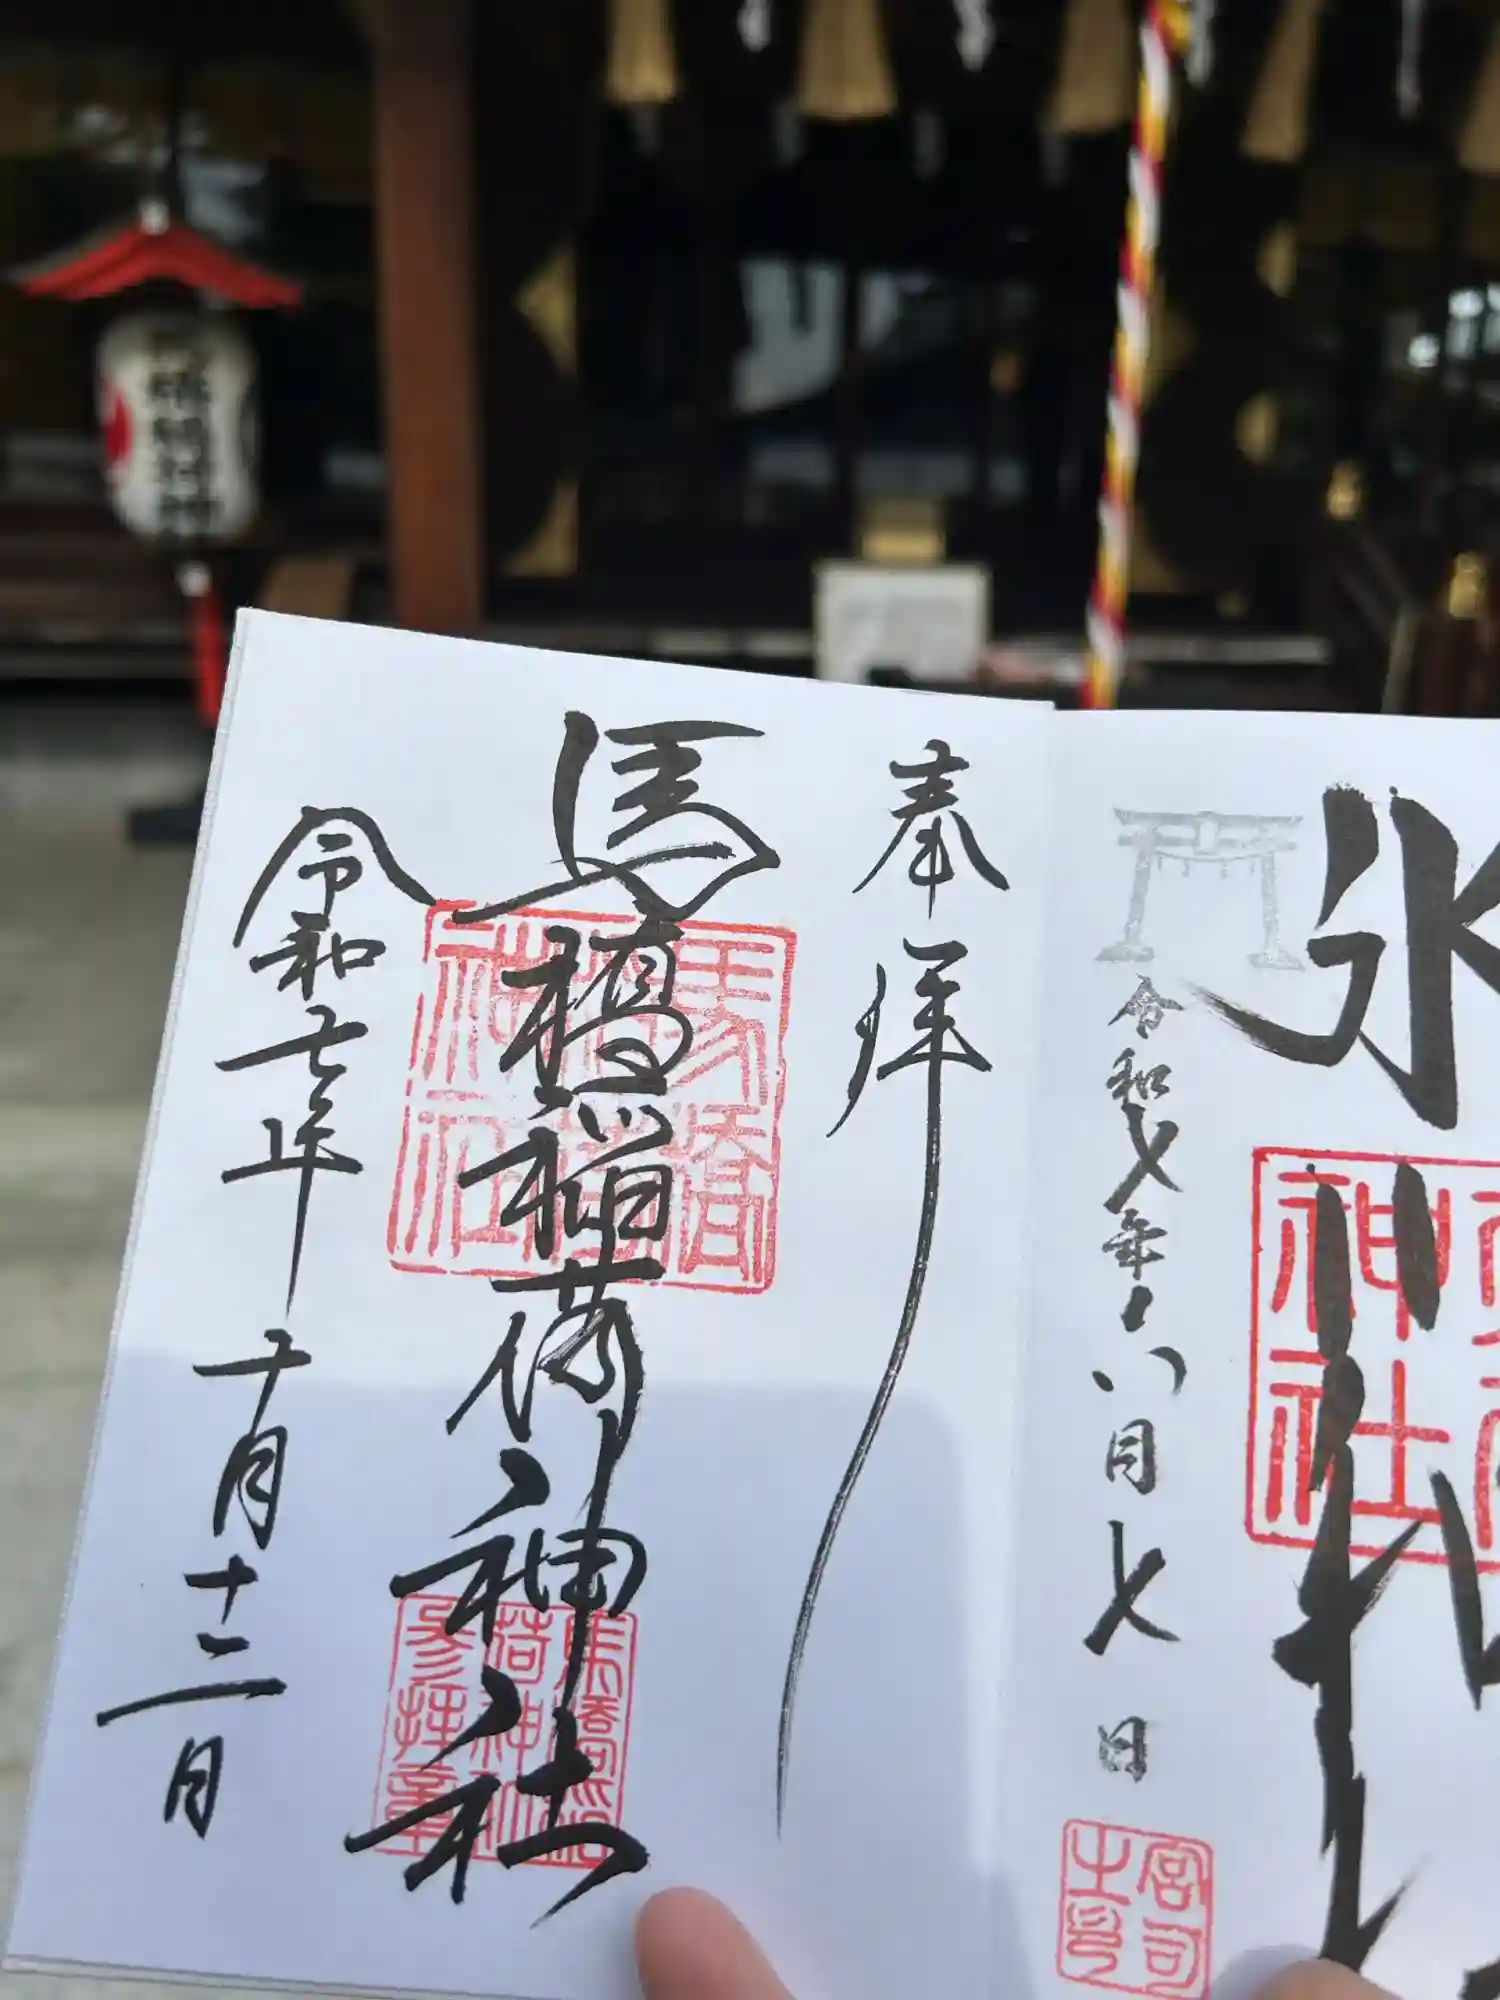 奉拝
馬橋稲荷神社
令和七年十月十二月
馬橋稲荷神社
馬橋稲荷神社参拝章
氷
令和七年八月七日
神社
宮司之印